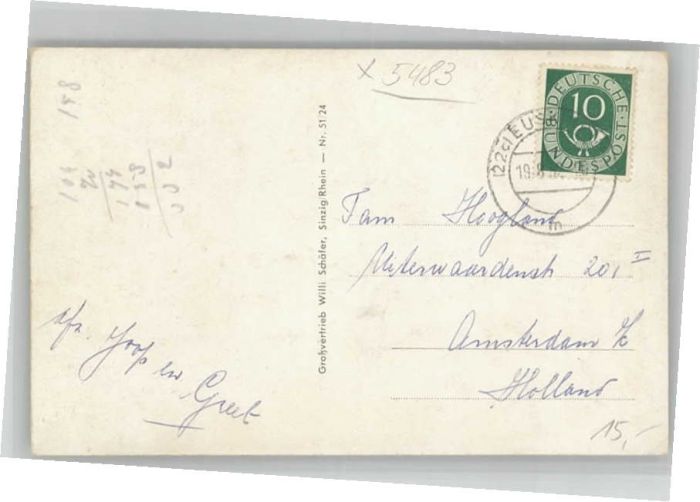 x 5483
DEUTSCHE BUNDESPOST
10
(22c) EUS
19.8.
m
Großvertrieb Willi Schäfer, Sinzig/Rhein — Nr. 51/24
Fam Hoogland
Uiterwaardenstr 201 I
Amsterdam Z
Holland
afz. Joop en
Greet
15,-
158